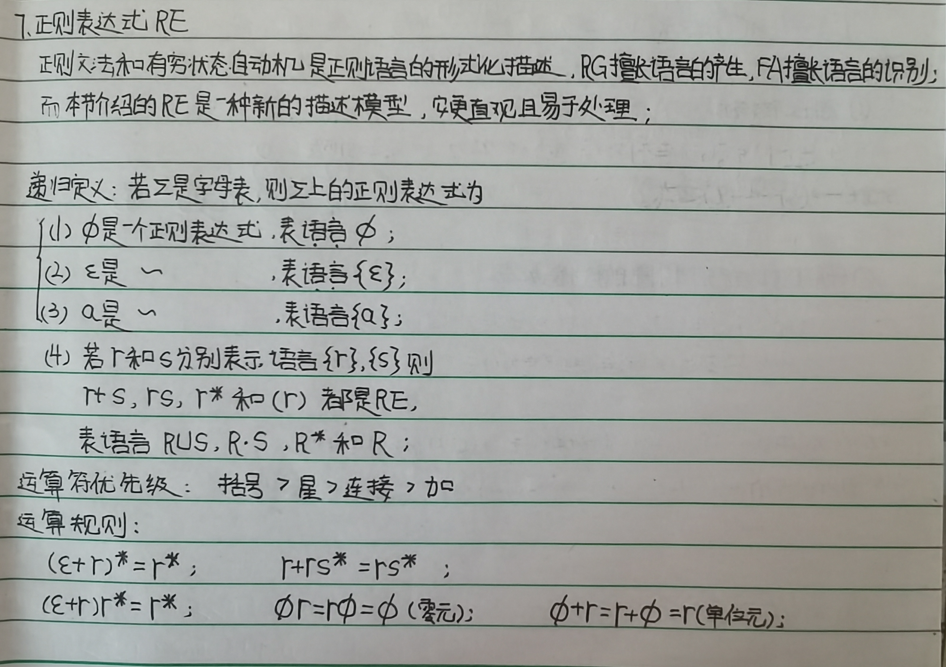 7.正则表达式 RE
正则文法和有穷状态自动机是正则语言的形式化描述,RG擅长语言的产生,FA擅长语言的识别;
而本节介绍的RE是一种新的描述模型,它更直观且易于处理;
递归定义:若Σ是字母表,则Σ上的正则表达式为
(1) φ是一个正则表达式,表语言φ;
(2) ε是 ~ ,表语言{ε};
(3) a是 ~ ,表语言{a};
(4) 若r和s分别表示语言{r},{s}则
r+s, rs, r* 和 (r) 都是RE,
表语言 R∪S, R·S, R* 和 R;
运算符优先级: 括号 > 星 > 连接 > 加
运算规则:
(ε+r)*=r*; r+rs*=rs*;
(ε+r)r*=r*; φr=rφ=φ(零元); φ+r=r+φ=r(单位元);